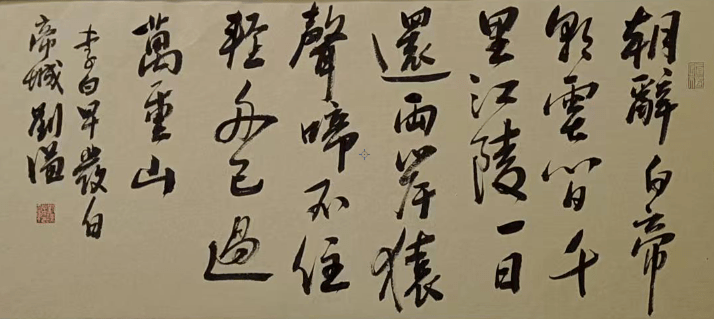 朝辭白帝
彩雲間千
里江陵一日
還两岸猿
聲啼不住
輕舟已過
萬重山
李白早發白
帝城劉溢